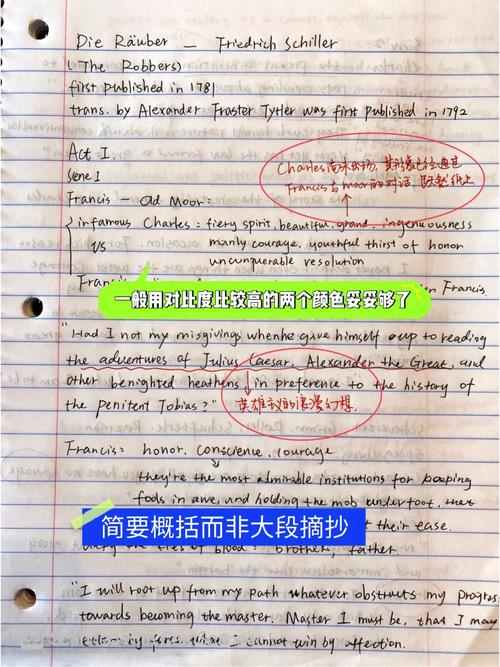 Die Räuber — Friedrich Schiller
(The Robbers)
first published in 1781
trans. by Alexander Fraster Tytler was first published in 1792
Act I.
Sene I
Charles尚未出场,其形象已经通过
Francis与moor的对话,跃然纸上
Francis — Old Moor:
infamous Charles: fiery spirit, beautiful, grand, ingenuousness
vs
manly courage, youthful thirst of honor
unconquerable resolution
Francis
Francis.
一般用对比度比较高的两个颜色妥妥够了
"Had I not my misgivings when he gave himself oup to reading
the adventures of Julius Caesar, Alexander the Great, and
other benighted heathens in preference to the history of
the penitent Tobias?"
英雄主义的浪漫幻想.
Francis: honor, conscience, courage
they're the most admirable institutions for keeping
fools in awe, and holding the mob underfoot, that
简要概括而非大段摘抄
their ease.
the ties of blood: brother, father
"I will root up from my path whatever obstructs my progress
towards becoming the master. Master I must be, that I may
what I cannot win by affection.